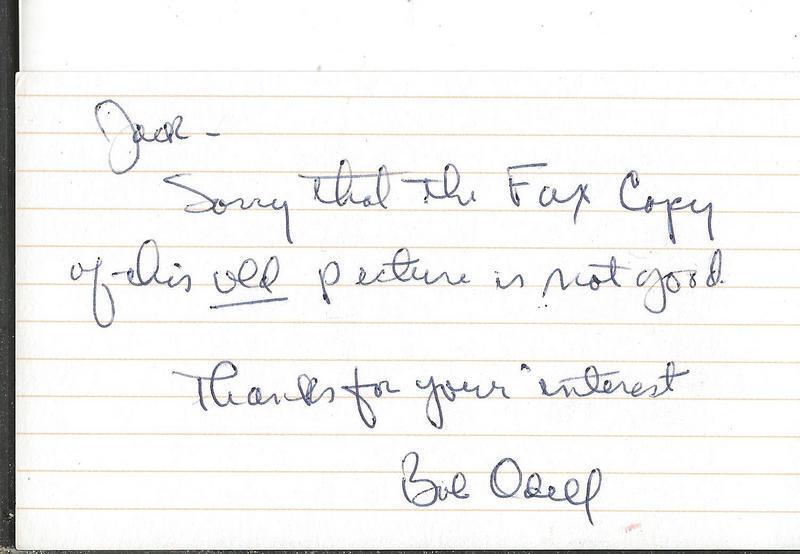 Jack -
Sorry that the Fax Copy
of this old picture is not good.
Thanks for your interest
Bob Odell